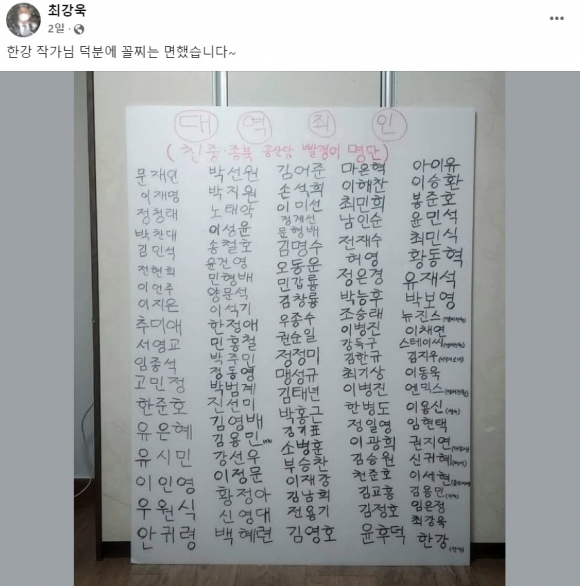 최강욱
2일
한강 작가님 덕분에 꼴찌는 면했습니다~
대 역 죄 인
(친중·종북 공산당 빨갱이 명단)
문재인
이재명
정청래
박찬대
김민석
전현희
이언주
이지은
추미애
서영교
임종석
고민정
한준호
유은혜
유시민
이인영
우원식
안귀령
박선원
박지원
노태악
이성윤
송철호
윤건영
민형배
양문석
이석기
한정애
민홍철
박주민
정동영
박범계
진선미
김영배
김용민
강선우
이정문
황정아
신영대
백혜련
김어준
손석희
이미선
정계선
문형배
김명수
오동운
민갑룡
김창룡
우종수
권순일
정정미
맹성규
김태년
박홍근
김기표
소병훈
부승찬
이재강
김남희
전용기
김영호
마은혁
이해찬
최민희
남인순
전재수
허영
정은경
박능후
조승래
이병진
강득구
김한규
최기상
이병진
한병도
정일영
이광희
김승원
천준호
김교흥
김정호
윤후덕
아이유
이승환
봉준호
윤민석
최민식
황동혁
유재석
박보영
뉴진스
이채연
스테이씨
김지우
이동욱
엔믹스
이용신
임현택
권지연
신귀혜
이서현
김용민
임은정
최강욱
한강